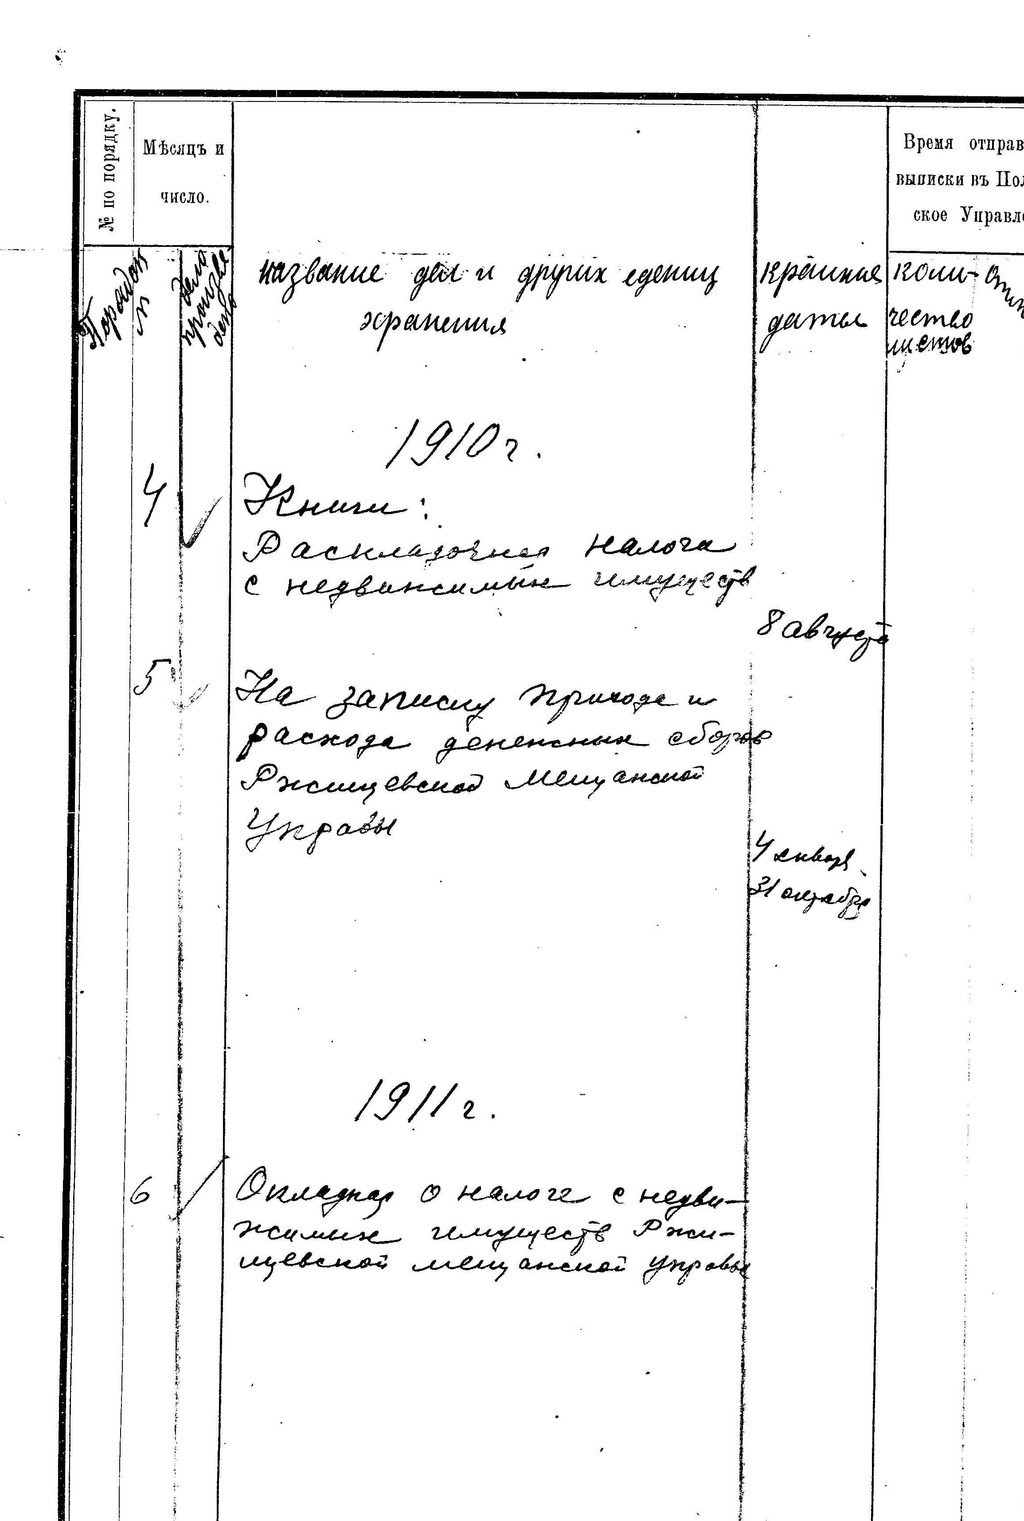 № по порядку.
Мѣсяцъ и
число.
Время отправ
выписки въ Пол
ское Управле
Порядков
№
дело
произве-
дено
название дел и других едениц
хранения
крайние
даты
коли-
чество
листов
1910 г.
4
Книги:
Раскладочная налога
с недвижимых имуществ
8 августа
5
На записку прихода и
расхода денежных сборов
Ржищевской Мещанской
Управы
4 января
31 октября
1911 г.
6
Окладная о налоге с недви-
жимых имуществ Ржи-
щевской мещанской управы